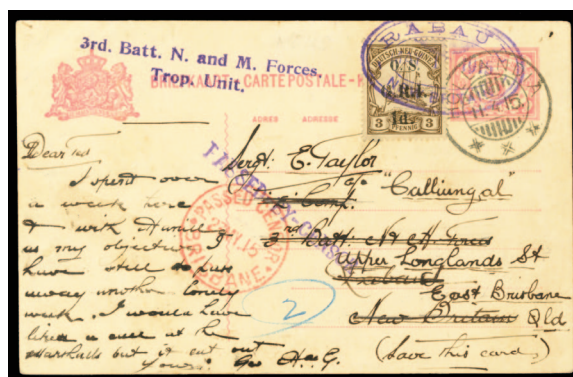 3rd. Batt. N. and M. Forces.
Trop. Unit.
BRIEFKAART - CARTE POSTALE -
ADRES ADRESSE
RABAUL
DEUTSCH-NEU-GUINEA
O.S.
G.R.I.
1d.
3 PFENNIG 3
11.4.15.
PASSED BY CENSOR
PASSED CENSOR
BRISBANE
Dear
I spent over
a week here
& with
as my objective I
have still to pass
away another lonely
week. I would have
liked a at the
Marshalls but it cut out
Yours
Sergt. E. Taylor
c/o "Calliungal"
3rd Batt.
Upper Longlands St
Rabaul
East Brisbane
New Britain Qld
(Save this card)
2